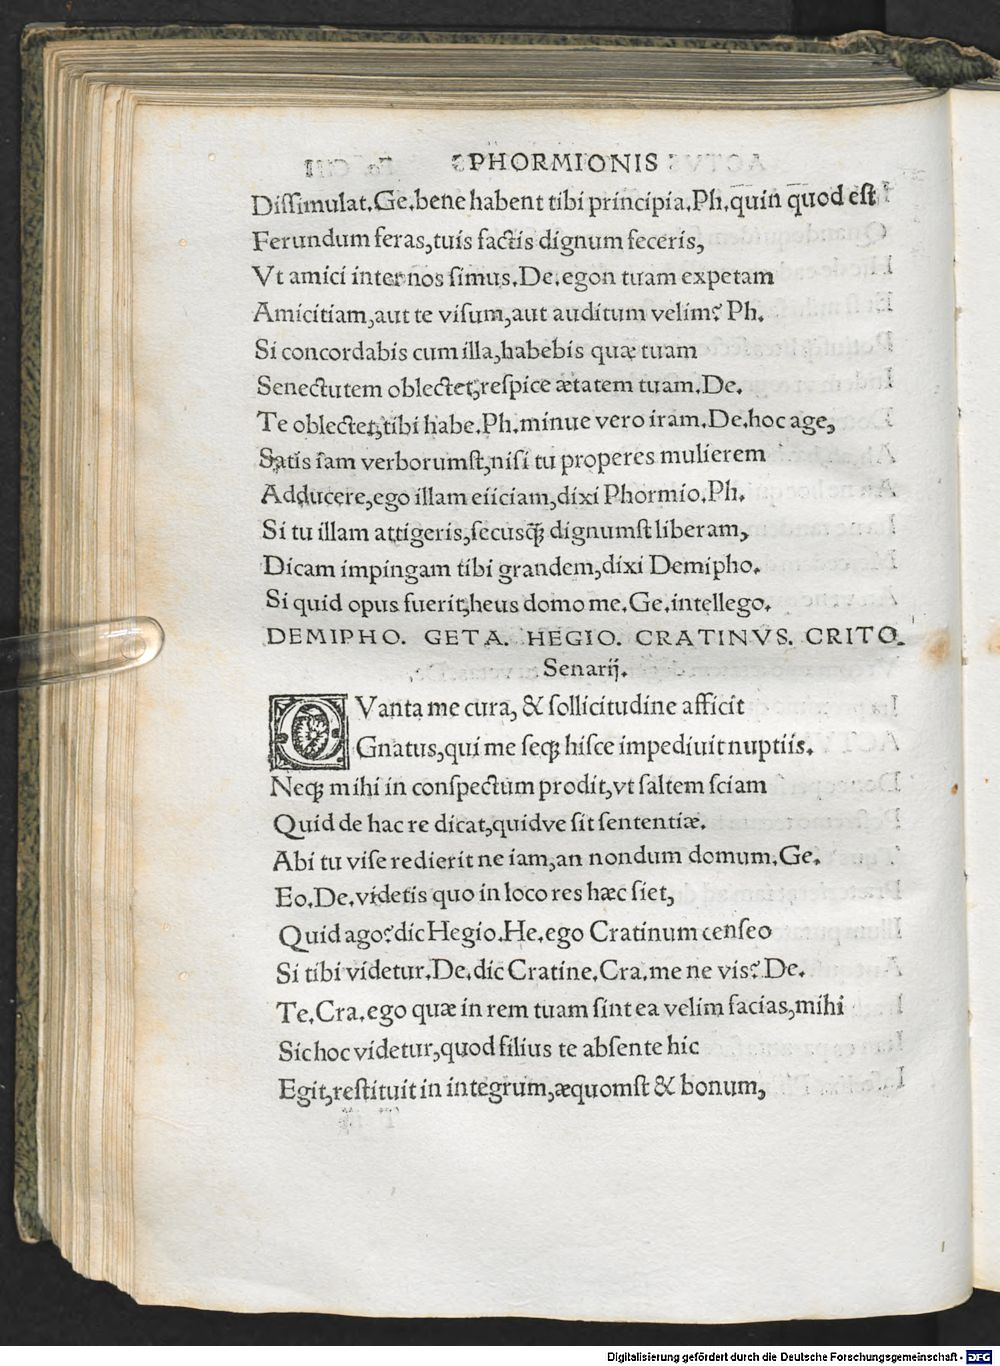 PHORMIONIS
Diſſimulat.Ge.bene habent tibi principia.Ph.quin quod eſt
Ferundum feras,tuis factis dignum feceris,
Vt amici inter nos ſimus.De.egon tuam expetam
Amicitiam,aut te viſum,aut auditum velim? Ph.
Si concordabis cum illa,habebis quæ tuam
Senectutem oblectet,reſpice ætatem tuam.De.
Te oblectet,tibi habe.Ph.minue vero iram.De.hoc age,
Satis iam verborumſt,niſi tu properes mulierem
Adducere,ego illam eiiciam,dixi Phormio.Ph.
Si tu illam attigeris,ſecusq̃ dignumſt liberam,
Dicam impingam tibi grandem,dixi Demipho.
Si quid opus fuerit,heus domo me.Ge.intellego.
DEMIPHO. GETA. HEGIO. CRATINVS. CRITO.
Senarij.
QVanta me cura, & ſollicitudine afficit
Gnatus,qui me ſeq; hiſce impediuit nuptiis.
Neq; mihi in conſpectum prodit,vt ſaltem ſciam
Quid de hac re dicat,quidve ſit ſententiæ.
Abi tu viſe redierit ne iam,an nondum domum.Ge.
Eo.De.videtis quo in loco res hæc ſiet,
Quid ago?dic Hegio.He.ego Cratinum cenſeo
Si tibi videtur.De.dic Cratine.Cra.me ne vis? De.
Te.Cra.ego quæ in rem tuam ſint ea velim facias,mihi
Sic hoc videtur,quod filius te abſente hic
Egit,reſtituit in integrum,æquomſt & bonum,
Digitalisierung gefördert durch die Deutsche Forschungsgemeinschaft - DFG